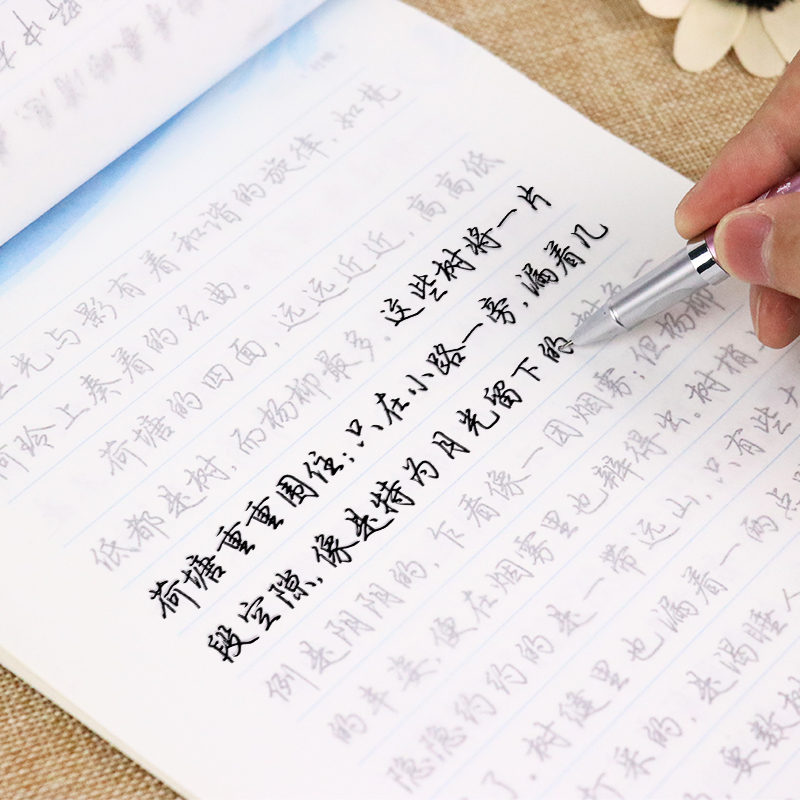 光与影有着和谐的旋律,如梵
玲上奏着的名曲。
荷塘的四面,远远近近,高高低
低都是树,而杨柳最多。这些树将一片
荷塘重重围住;只在小路一旁,漏着几
段空隙,像是特为月光留下的
例是阴阴的,乍看像一团烟雾;但杨柳
的丰姿,便在烟雾里也辨得出。树梢
隐隐约约的是一带远山,只有些
了。树缝里也漏着一两点
打采的,是渴睡人
要数树